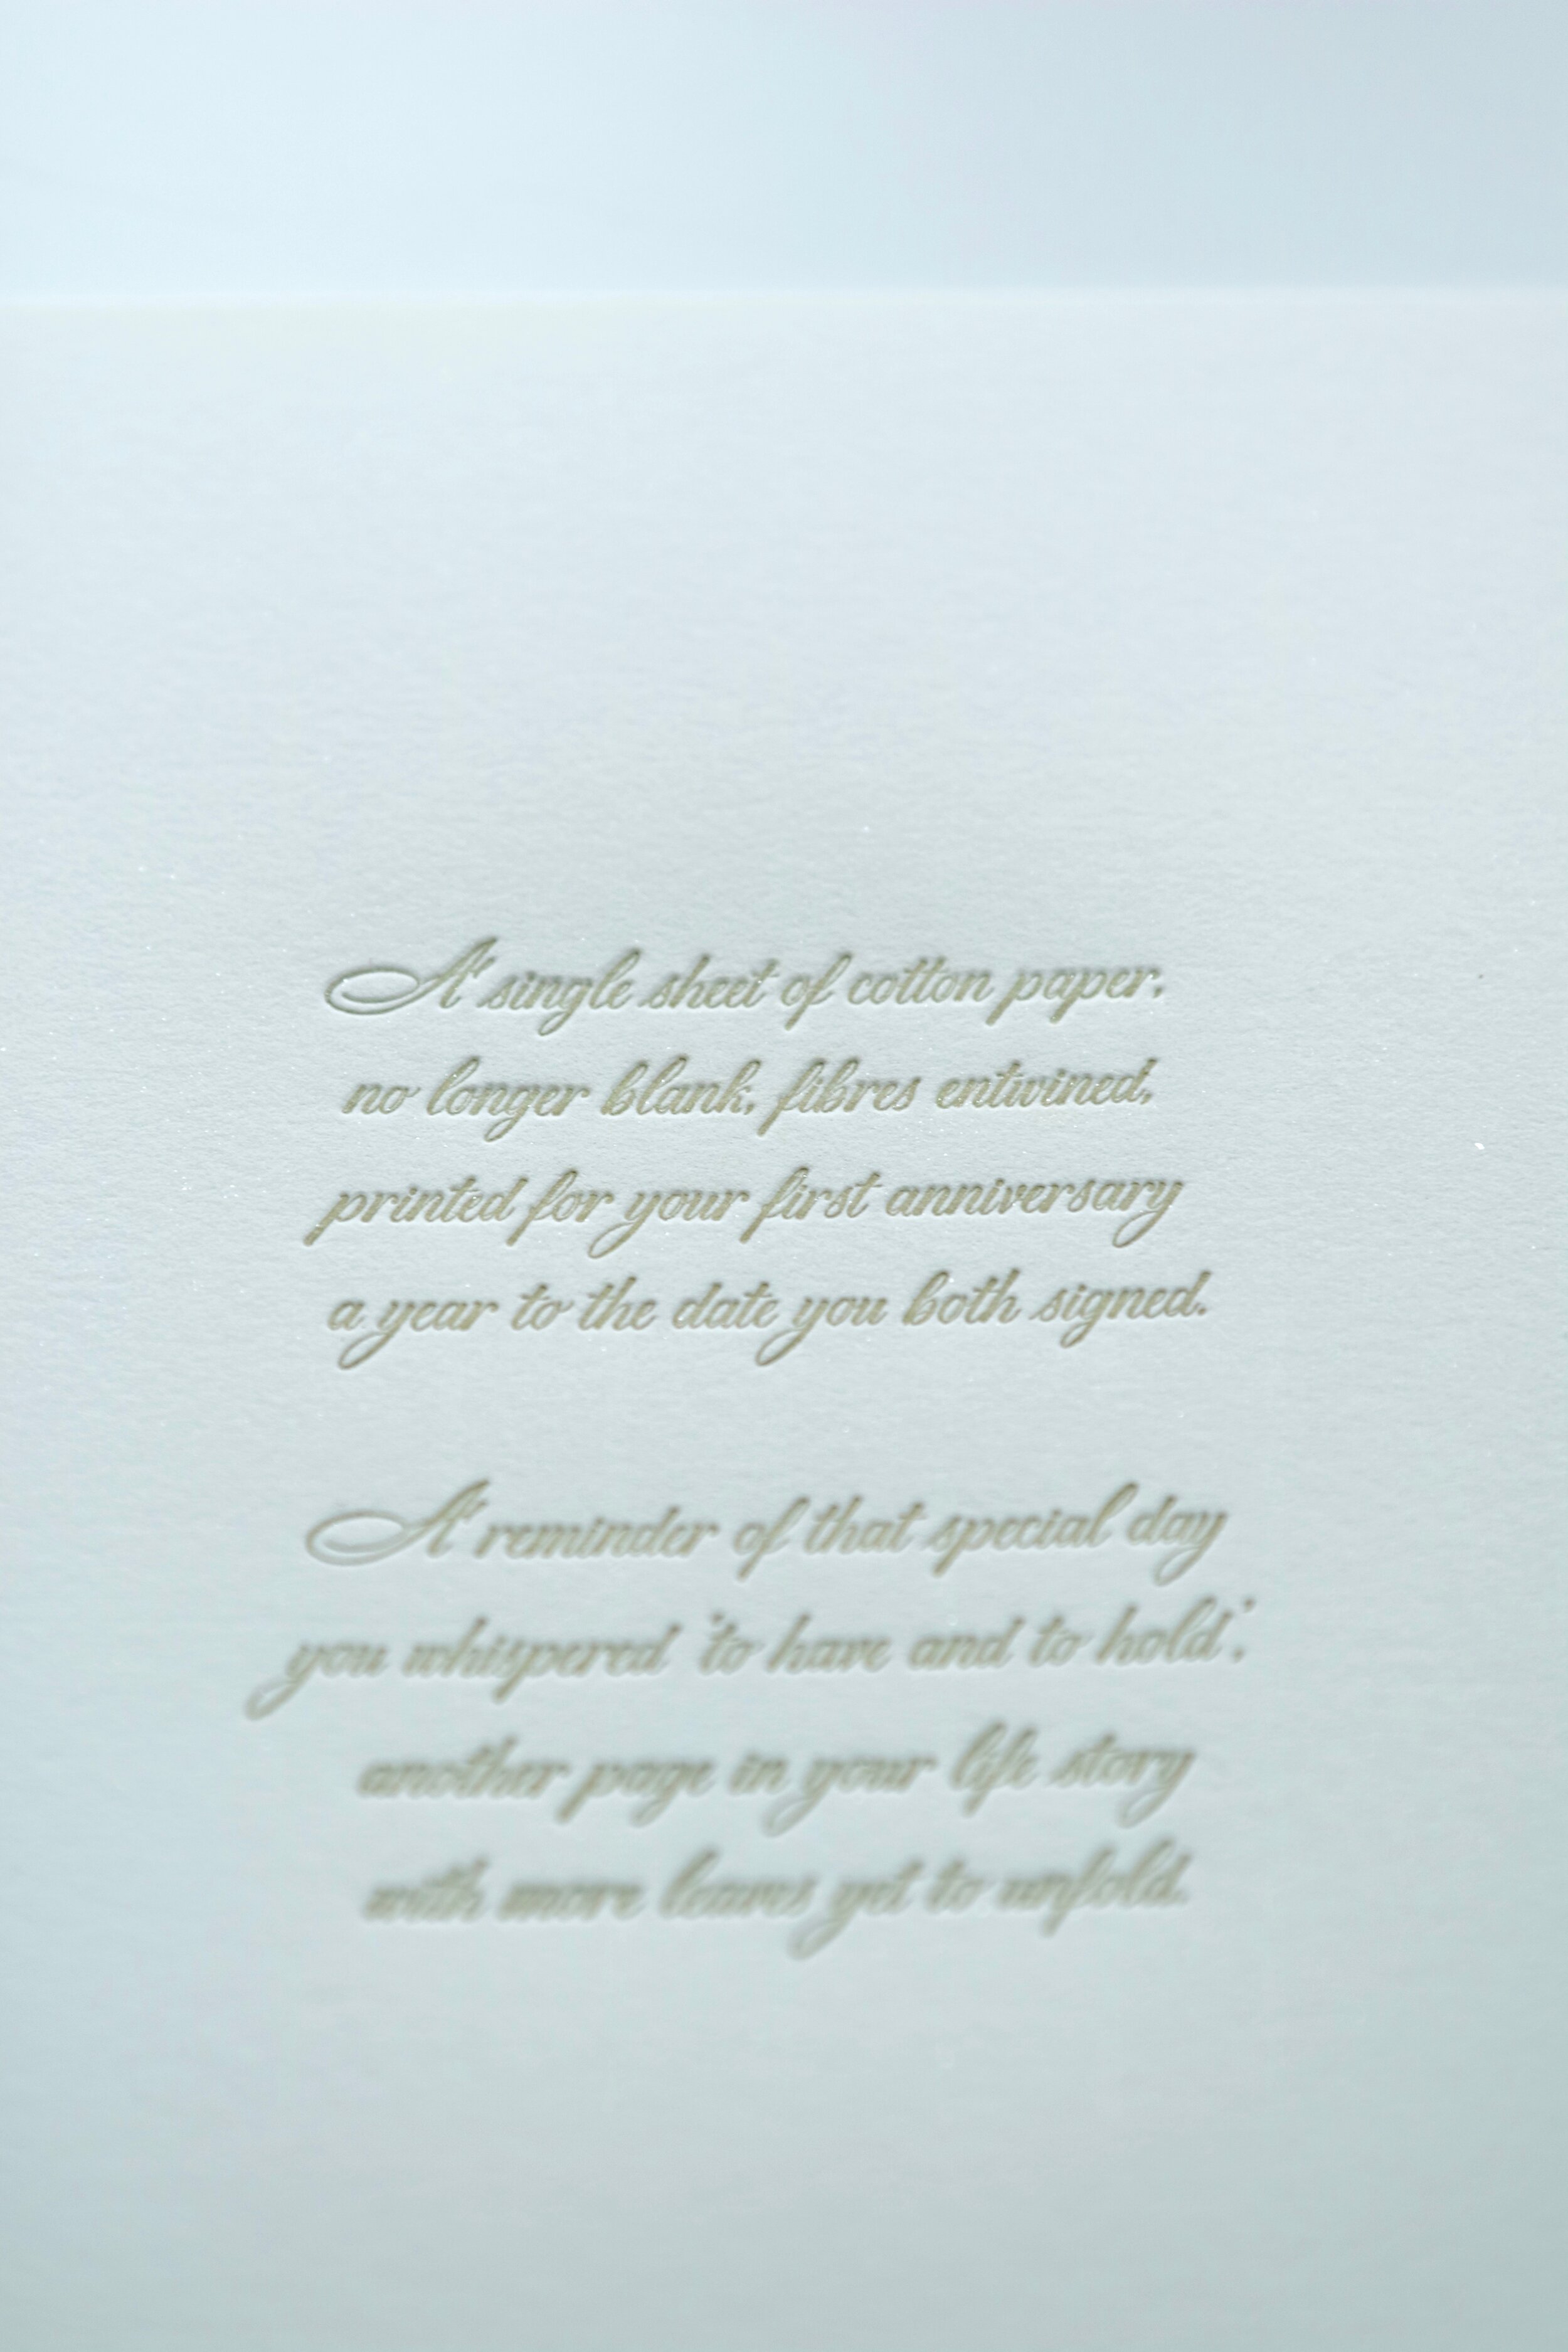 A single sheet of cotton paper,
no longer blank, fibres entwined,
printed for your first anniversary
a year to the date you both signed.
A reminder of that special day
you whispered 'to have and to hold',
another page in your life story
with more leaves yet to unfold.